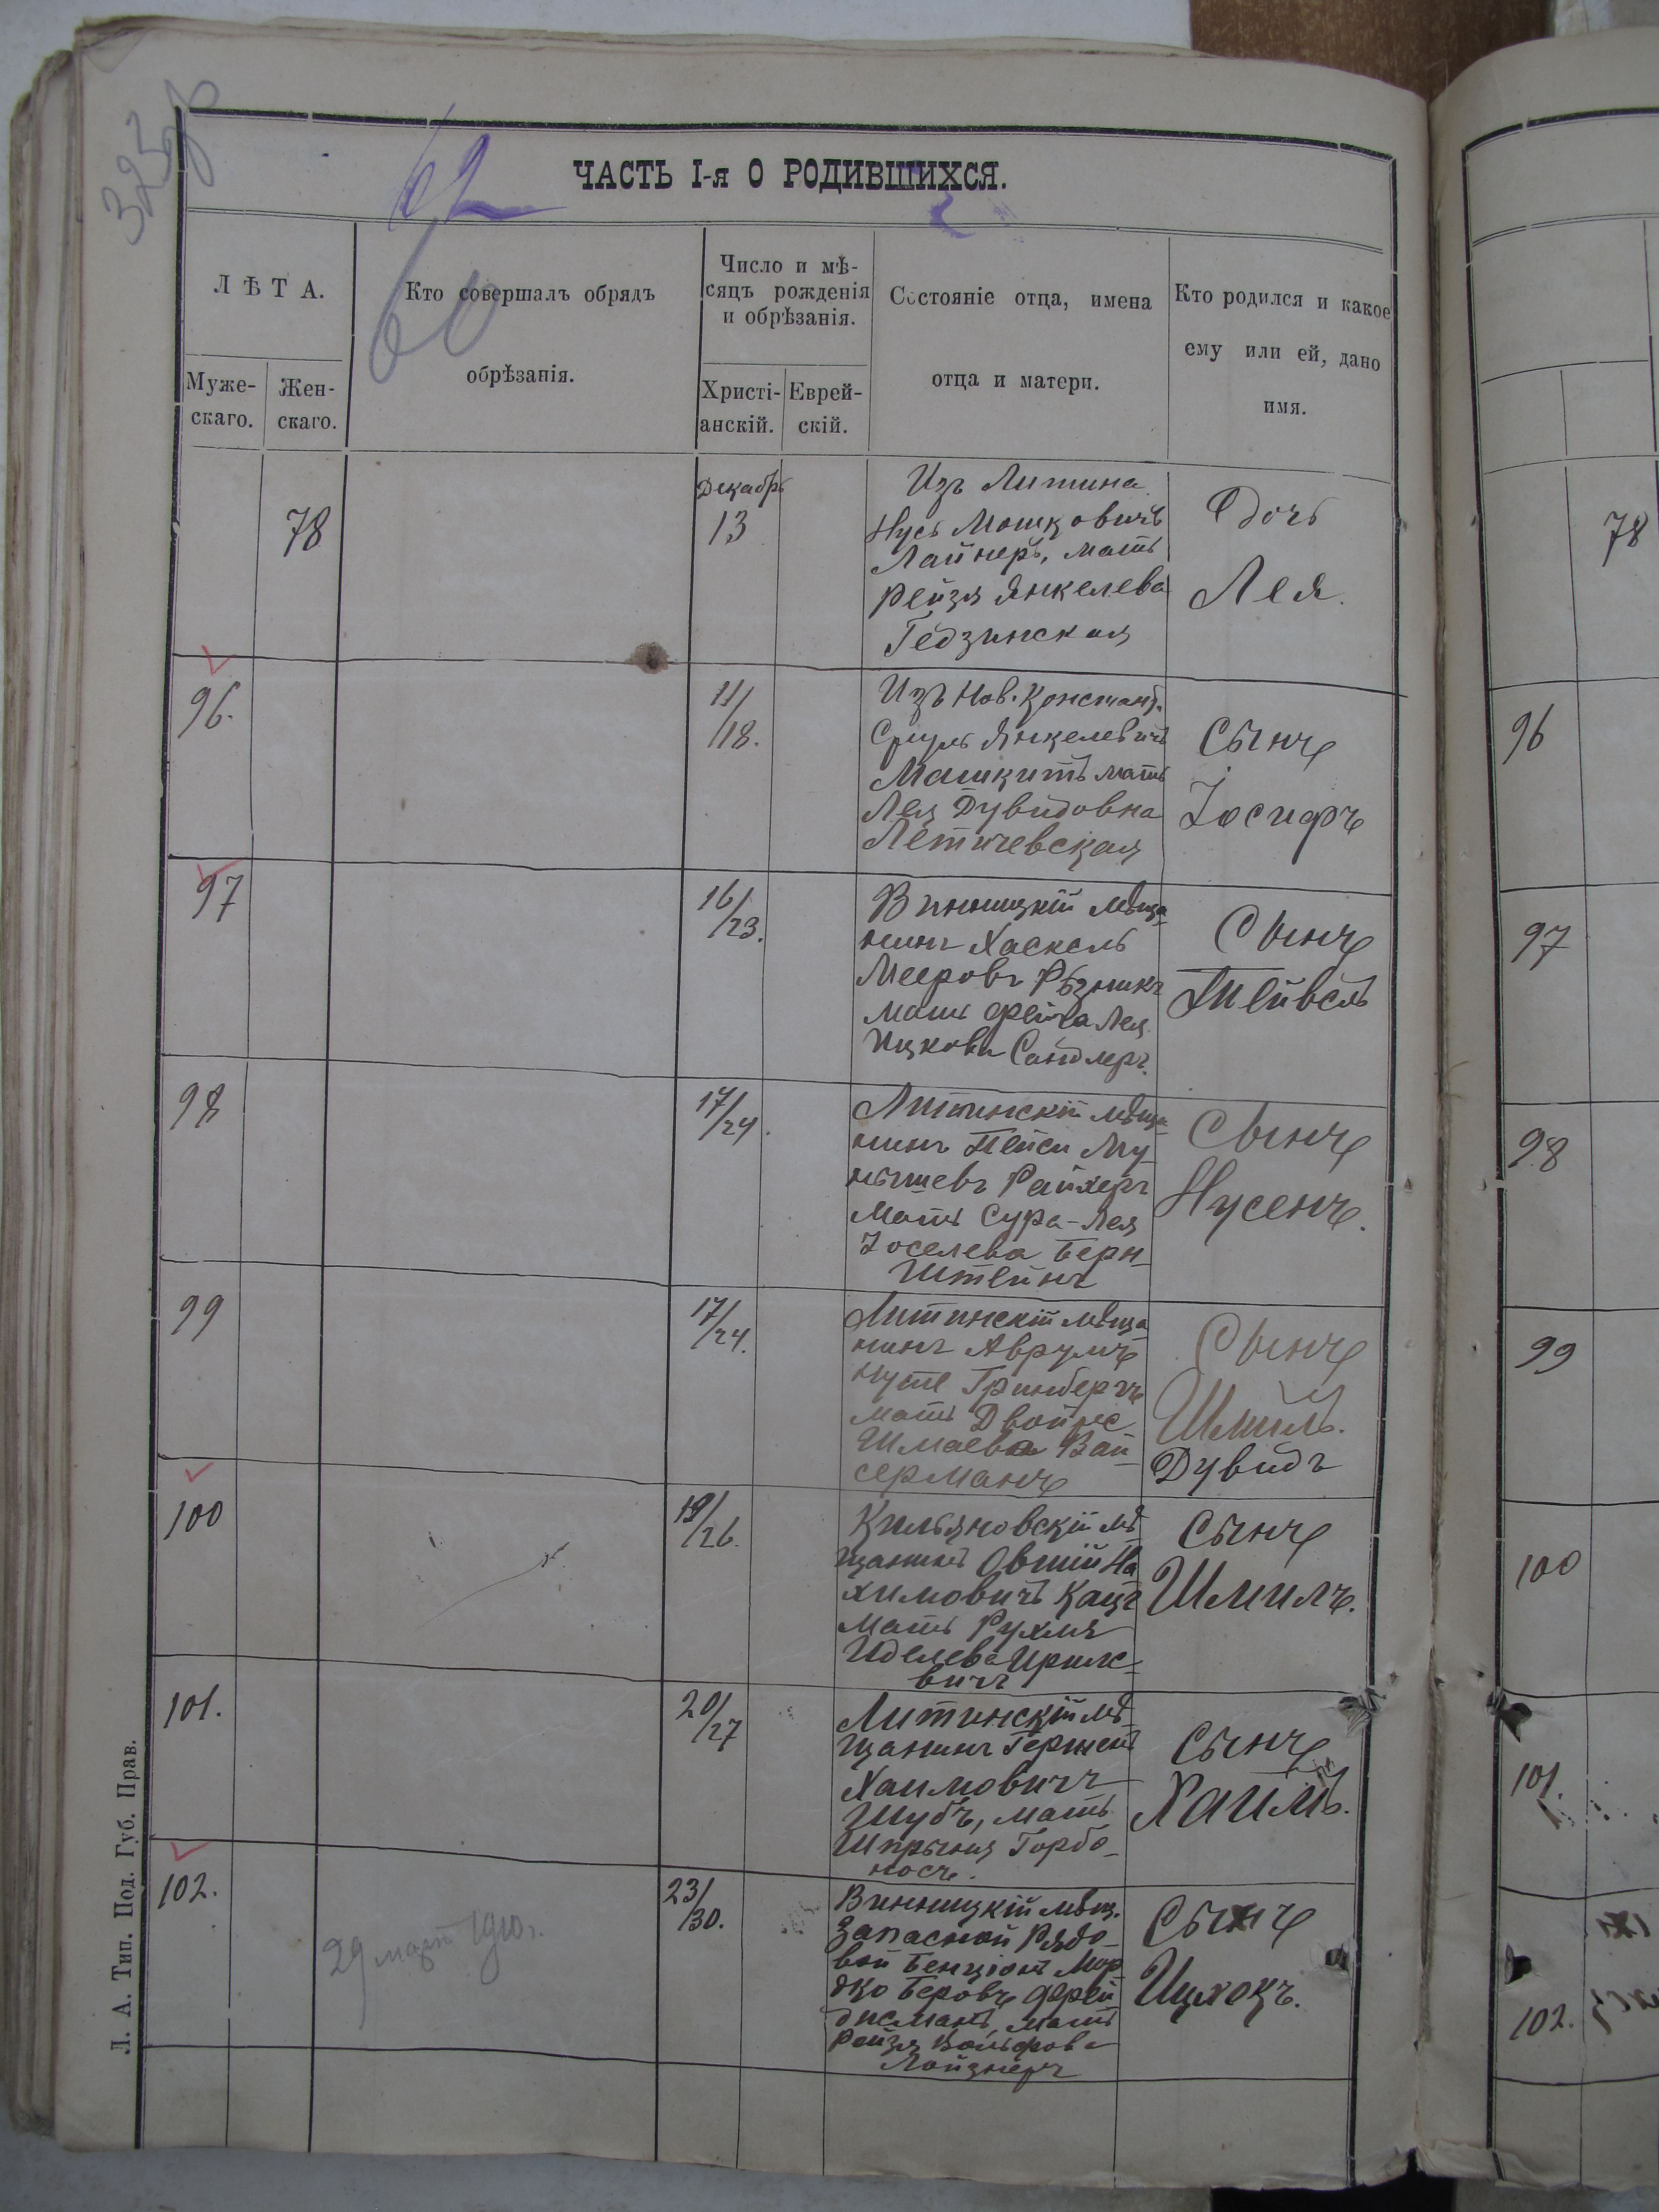 325
62
60
ЧАСТЬ I-я О РОДИВШИХСЯ.
ЛѢТА.
Муже-
скаго.
Жен-
скаго.
Кто совершалъ обрядъ
обрѣзанія.
Число и мѣ-
сяцъ рожденія
и обрѣзанія.
Христі-
анскій.
Еврей-
скій.
Состояніе отца, имена
отца и матери.
Кто родился и какое
ему или ей, дано
имя.
78
Декабрь
13
Изъ Литина
Нусь Мошковичъ
Лайнеръ, мать
Рейзя Янкелева
Гедзинская
Дочь
Лея.
78
96.
11/18.
Изъ Нов. Констант.
Сруль Янкелевичъ
Машкитъ мать
Лея Дувидовна
Летичевская
Сынъ
Іосифъ
96
97
16/23.
Винницкій мѣща-
нинъ Хаскель
Мееровъ Рѣзникъ
мать Лея
Ицкова Сандлеръ.
Сынъ
Тейвель
97
98
17/24.
Литинскій мѣща-
нинъ Пейси Му-
нышевъ Райхеръ
Мать Сура-Лея
Іоселева Берн-
штейнъ
Сынъ
Нусенъ.
98
99
17/24.
Литинскій мѣща
нинъ Аврумъ
Нуте Гринбергъ
мать Двойре
Шмаева Вай-
серманъ
Сынъ
Шмиль.
Дувидъ
99
100
19/26.
Кильяновскій мѣ-
щанинъ Овшій На
химовичъ Кацъ
Мать Рухля
Иделева
вичъ
Сынъ
Шмилъ.
100
101.
20/27
Литинскій мѣ-
щанинъ Гершенъ
Хаимовичъ
Шубъ, мать
Шпрынця Горбо-
носъ.
Сынъ
Хаимъ.
101.
102.
29 март 1910 г.
23/30.
Винницкій мѣщ.
Запасной Рядо-
вой Бенціонъ Мор
дко Беровъ Фрей
дисманъ, мать
Рейзя Вольфова
Лойзнеръ
Сынъ
Ицхокъ.
102.
Л. А. Тип. Под. Губ. Прав.